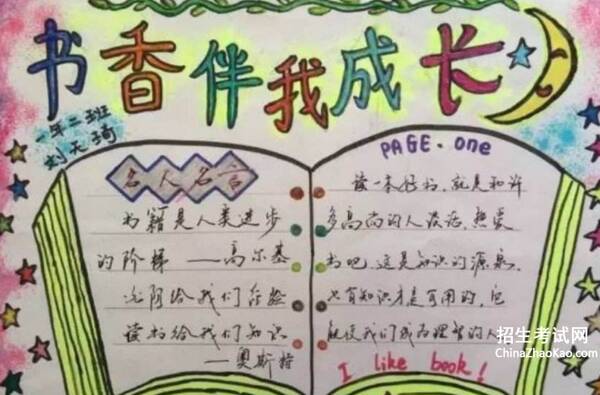 书香伴我成长
一年二班
刘天琦
名人名言
书籍是人类进步
的阶梯 ——高尔基
光阴给我们经验
读书给我们知识
——奥斯特
PAGE.one
读一本好书,就是和许
多高尚的人谈话,热爱
书吧,这是知识的源泉,
只有知识才是可用的,它
能使我们成为理智的人
I like book!
招生考试网
ChinaZhaoKao.com